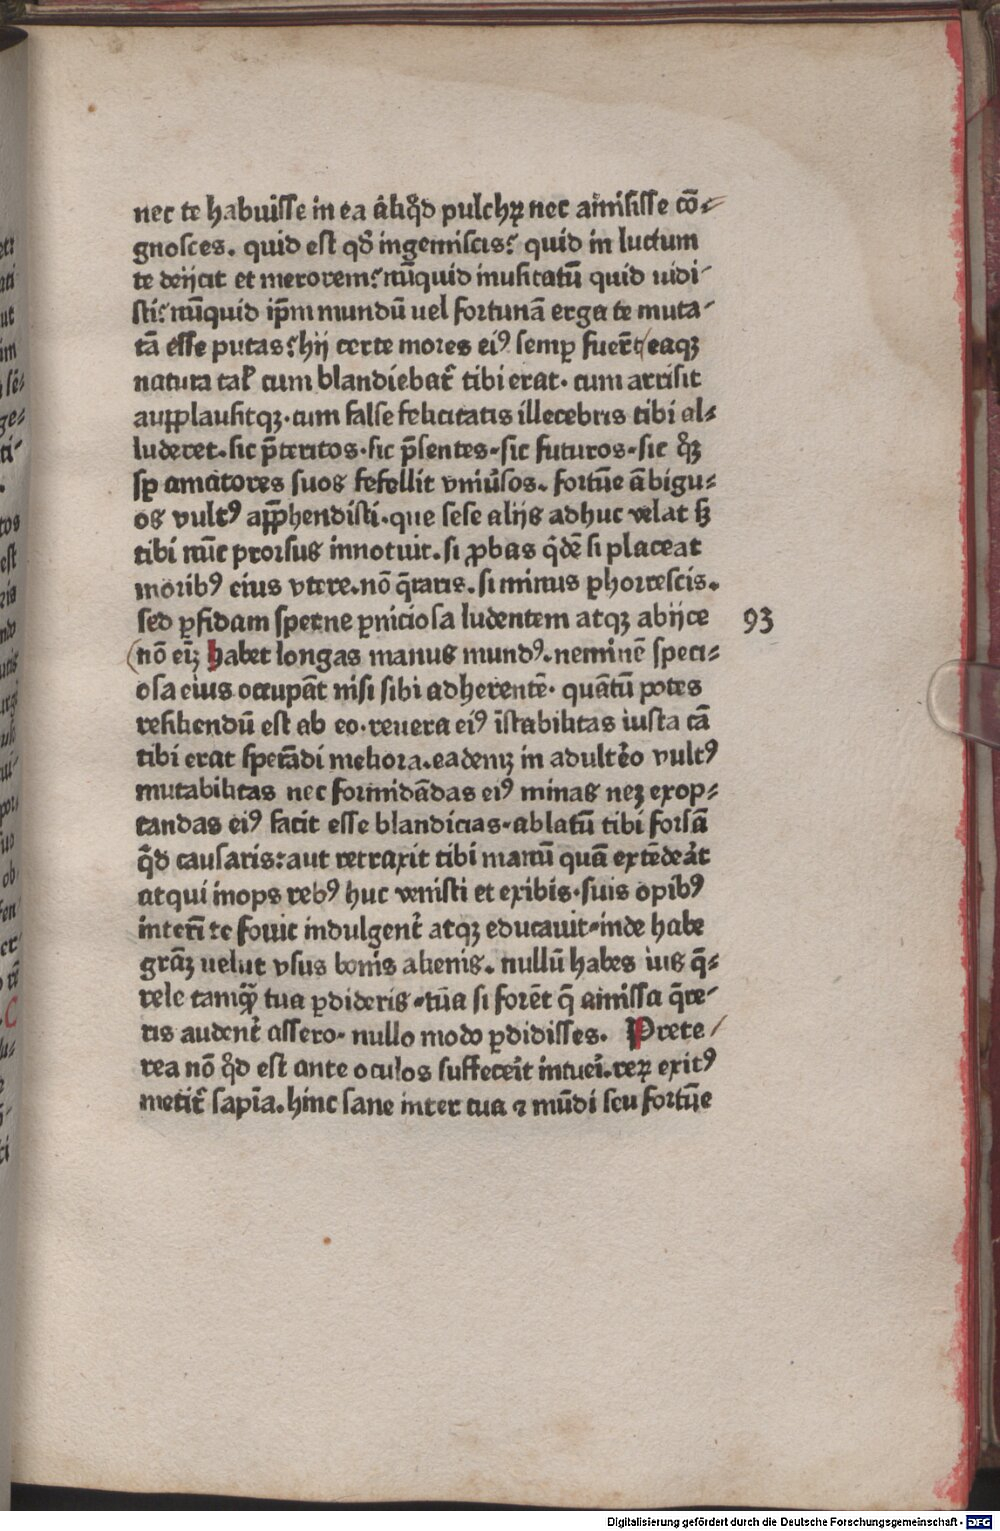 nec te habuisse in ea aliqͥd pulchꝝ nec amisisse cō⸗
gnosces. quid est qď ingemiscis? quid in luctum
te deijcit et merorem? nūquid inusitatū quid uidi⸗
sti? nūquid ip̄m mundū uel fortunā erga te muta⸗
tā esse putas? hij certe mores eiꝰ semꝑ fuer̄t eaqꝫ
natura tal̕ cum blandiebat᷑ tibi erat. cum arrisit
aupplausitqꝫ. cum false felicitatis illecebris tibi al⸗
luderet. sic p̄teritos. sic p̄sentes. sic futuros. sic qͦꝫ
sꝑ amatores suos fefellit vniūsos. fortūe ābigu⸗
os vultꝰ app̄hendisti. que sese alijs adhuc velat sꝫ
tibi nūc prorsus innotuit. si ꝓbas q̇dē si placeat
moribꝰ eius vtere. nō q̄raris. si minus ꝑhorrescis.
sed ꝑfidam sperne ꝑniciosa ludentem atqꝫ abijce
93
nō ei̅ꝫ habet longas manus mundꝰ. neminē speci⸗
osa eius occupāt nisi sibi adherentē. quātū potes
resiliendū est ab eo. reuera eiꝰ īstabilitas iusta cā
tibi erat sperādi meliora. eademꝫ in adulte̓o vultꝰ
mutabilitas nec formidādas eiꝰ minas neꝫ exop⸗
tandas eiꝰ facit esse blandicias. ablatū tibi forsā
qͥd causaris: aut retraxit tibi manū quā extēdea̓t
atqui inops rebꝰ huc venisti et exibis. suis opibꝰ
interī te fouit indulgent̓ atqꝫ educauit. inde habe
grāꝫ uelut vsus bonis alienis. nullū habes ius q̄⸗
rele tamqꝫ̄ tua ꝑdideris. tūa si forēt q̄ amissa q̄re⸗
ris audent̓ assero. nullo modo ꝑdidisses. Prete⸗
rea nō qͦd est ante oculos suffecei̓t intuei̓. reꝝ exitꝰ
metit᷑ sapīa. hinc sane inter tua ⁊ mūdi seu fortūe
Digitalisierung gefördert durch die Deutsche Forschungsgemeinschaft - DFG